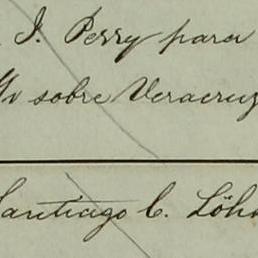 J. Perry para
sobre Veracruz
Santiago C. Löh